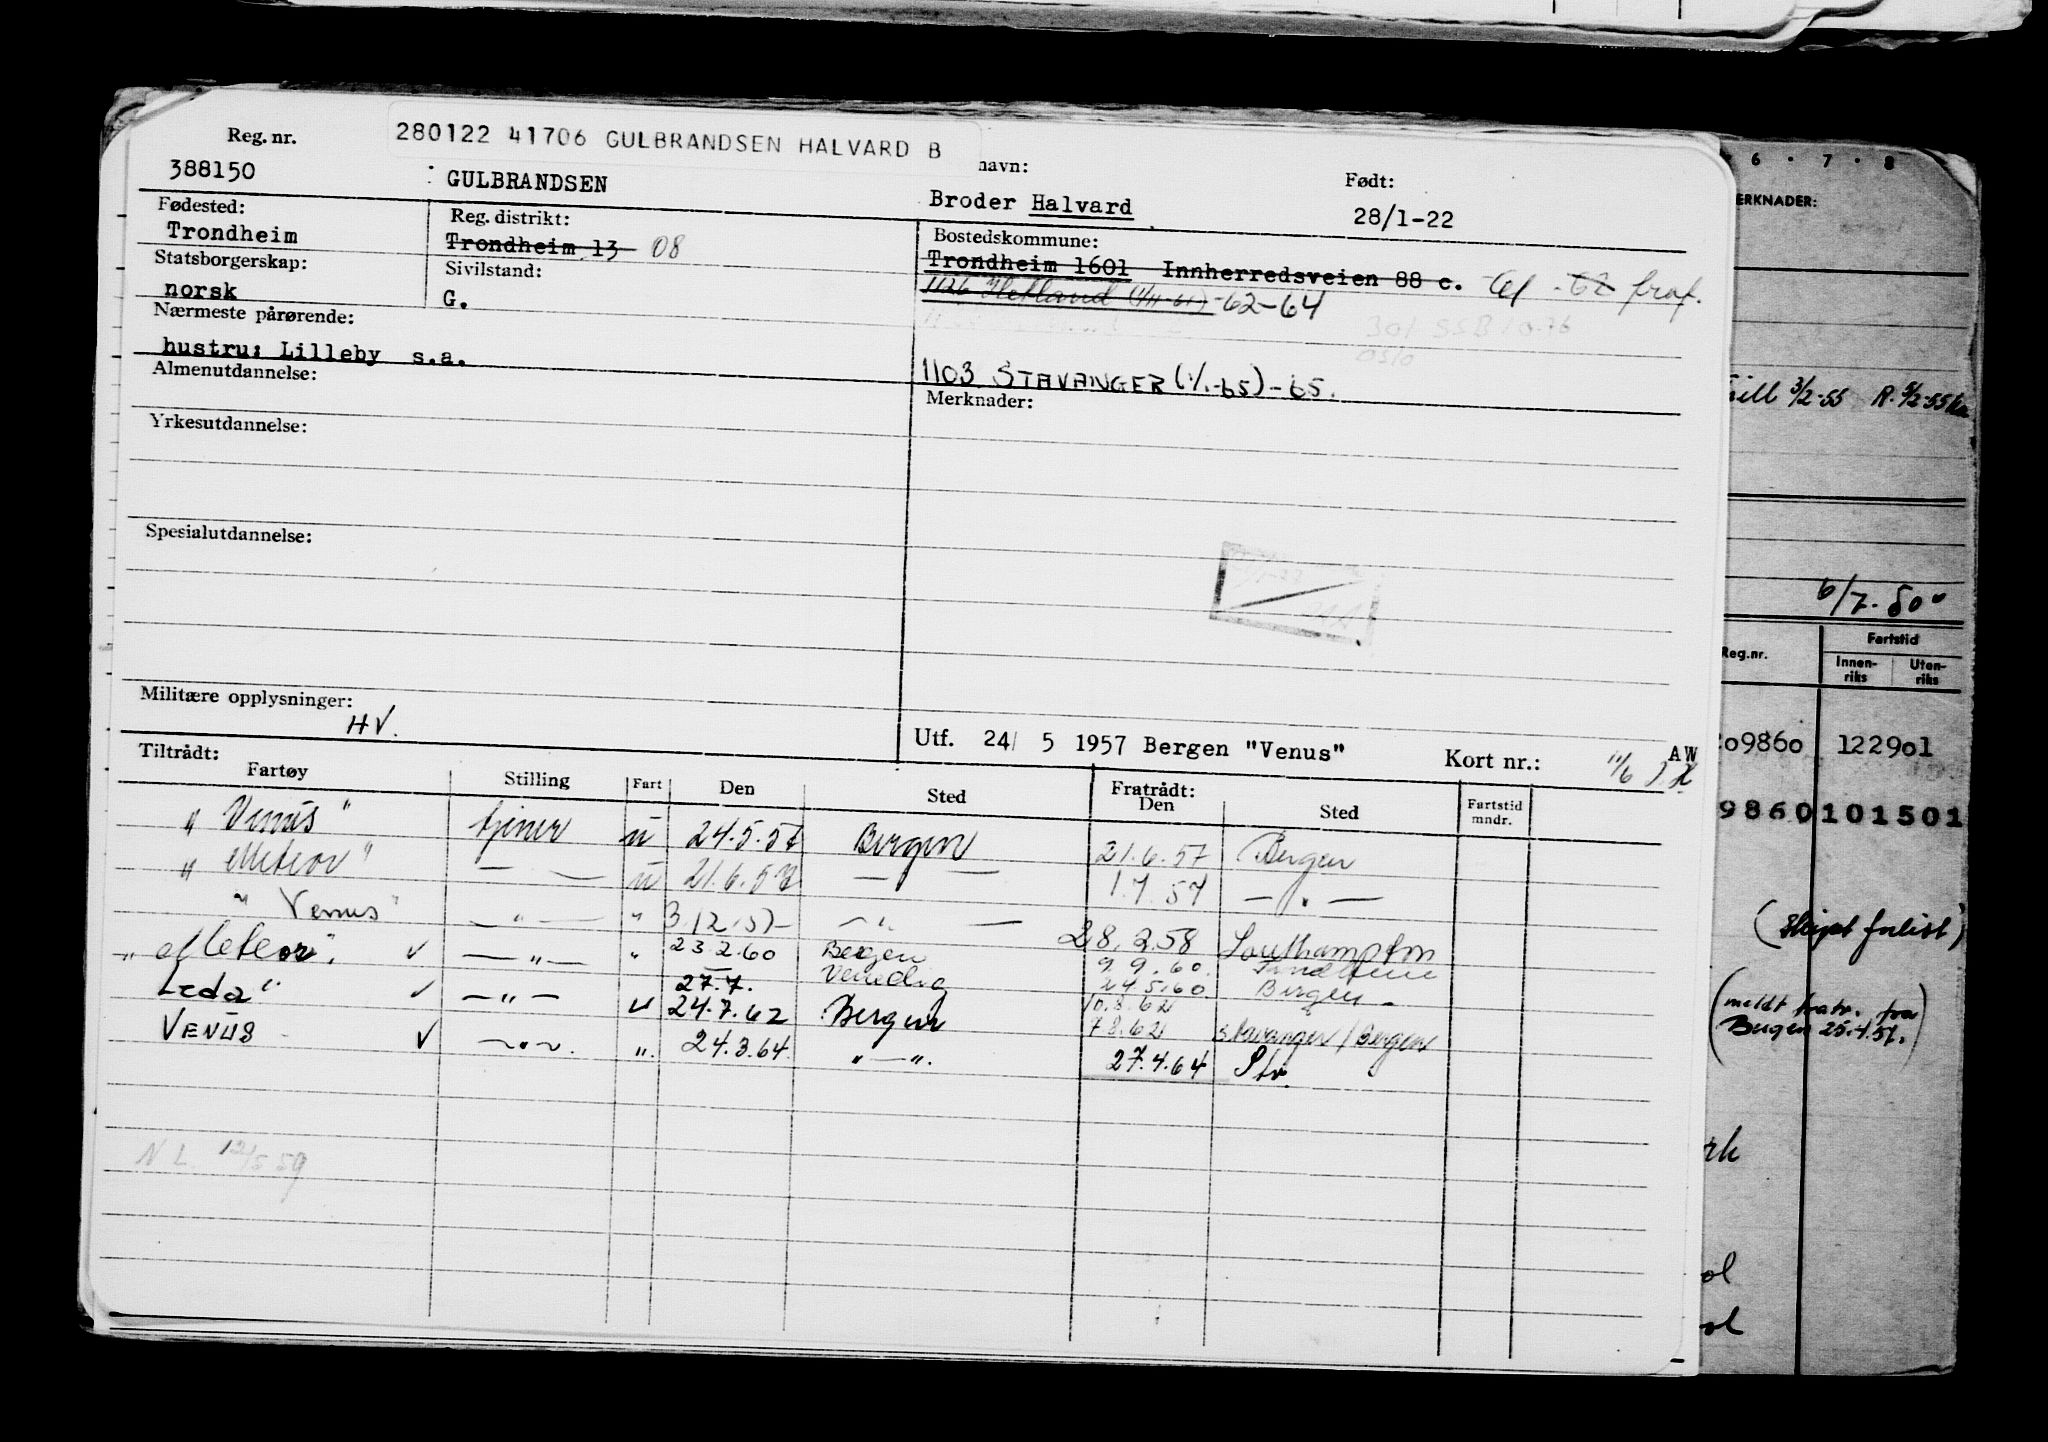 280122 41706 GULBRANDSEN HALVARD B
Reg. nr. navn: Født:
388150 GULBRANDSEN Broder Halvard 28/1-22
Fødested: Reg. distrikt: Bostedskommune:
Trondheim Trondheim 13 08 Trondheim 1601 Innherredsveien 88 c.
Statsborgerskap: Sivilstand: 1126 Hetland (1/11-61)-62-64
norsk G.
Nærmeste pårørende:
hustru: Lilleby s.a.
1103 STAVANGER (1/1-65)-65.
Almenutdannelse: Merknader:
Yrkesutdannelse:
Spesialutdannelse:
Militære opplysninger:
HV.
Utf. 24/ 5 1957 Bergen "Venus" Kort nr.: 11/6 AW
Tiltrådt: Fratrådt:
Fartøy Stilling Fart Den Sted Den Sted Fartstid mndr.
"Venus" tjener u 24.5.57 Bergen 21.6.57 Bergen
"Meteor" — — u 21.6.57 — — 1.7.57 — " —
"Venus" — " — " 3.12.57 — " — 28.2.58 Southampton
"Meteor". ✓ — " — " 23 2.60 Bergen 9.9.60. Trondheim
27.7. Venedig 24.5.60. Bergen
Leda" ✓ — " — u 24.7.62 Bergen 10.8.62
7 8.62 Stavanger / Bergen
VENUS ✓ — " — ". 24.3.64 " — ". 27.4.64 Str.
N L. 12/5 59
6 · 7 · 8
ERKNADER:
3/2-55 R. 9/2-55
6/7. 50
Reg.nr. Fartstid
Innen-riks Uten-riks
09860 122901
9860 101501
(Skipet forlist)
(meldt fratr. fra
Bergen 25.4.57.)
rk
ol
ol